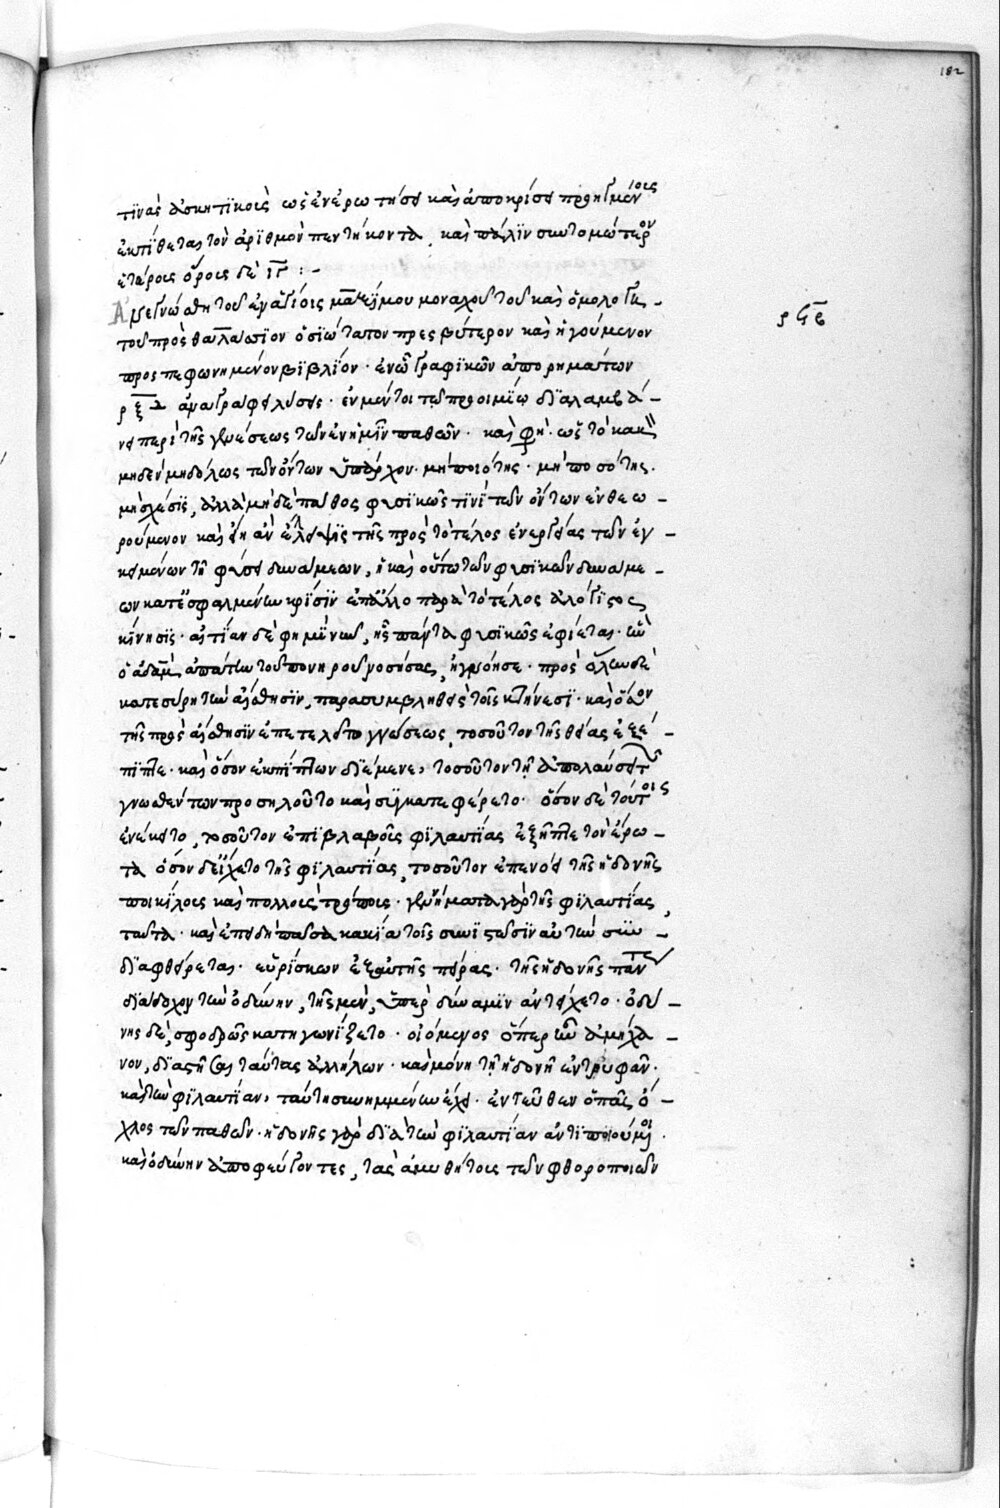 182
τινὰς ἀσκητικοῖς ὡς ἐν ἐρωτήσει καὶ ἀποκρίσει προηγμένοις
ἐκτίθεται τὸν ἀριθμὸν πεντήκοντα, καὶ πάλιν συντομώτερον
ἑτάροις ὅροις δὲ ιγ :-
Ἀνεγνώσθη τοῦ ἐν ἁγίοις μαξίμου μοναχοῦ τοῦ καὶ ὁμολογη-
ρϟβ
τοῦ πρὸς θαλάσσιον ὁσιώτατον πρεσβύτερον καὶ ἡγούμενον
προσπεφωνημένον βιβλίον. ἐν ᾧ γραφικῶν ἀπορημάτων
ρξδ ἀναγράφει λύσεις. ἐν μέντοι τῷ προοιμίῳ διαλαμβά-
νει περὶ τῆς γενέσεως τῶν ἐν ἡμῖν παθῶν. καὶ φησὶ. ὡς τὸ κακὸν
μηδὲν μηδόλως τῶν ὄντων ὑπάρχον. μὴ ποιότης. μὴ ποσότης.
μὴ σχέσις, ἀλλὰ μηδὲ πάθος φυσικῶς τινὶ τῶν ὄντων ἐνθεω-
ρούμενον καὶ εἴη ἂν ἔλλειψις τῆς πρὸς τὸ τέλος ἐνεργείας τῶν ἐγ-
κειμένων τῇ φύσει δυνάμεων, ἢ καὶ οὕτω τῶν φυσικῶν δυνάμε-
ων κατ' ἐσφαλμένην κρίσιν ἐπ' ἄλλο παρὰ τὸ τέλος ἀλόγιστος
κίνησις. αἰτίαν δέ φημι νῦν, ἧς πάντα φυσικῶς ἐφίεται. ἣν
ὁ ἀδὰμ ἀπάτην τοῦ πονηροῦ νοσήσας, ἠγνόησε. πρὸς ὅλην δὲ
κατεσύρη τὴν αἴσθησιν, παρασυμβληθεὶς τοῖς κτήνεσι. καὶ ὅσον
τῆς πρὸς αἴσθησιν ἐπετελεῖτο γνώσεως, τοσοῦτον τῆς θείας ἐξέ-
πιπτε. καὶ ὅσον ἐκπίπτων διέμενε, τοσοῦτον τῇ ἀπολαύσει τῶν
γνωσθέντων προσηλοῦτο καὶ συγκατεφέρετο. ὅσον δὲ τούτοις
ἐνέκειτο, τοσοῦτον ἐπιβλαβοῦς φιλαυτίας ἐξῆπτε τὸν ἔρω-
τα ὅσον δὲ εἴχετο τῆς φιλαυτίας, τοσοῦτον ἐπενόει τῆς ἡδονῆς
ποικίλους καὶ πολλοὺς τρόπους. γεννήματα γὰρ τῆς φιλαυτίας,
ταῦτα. καὶ ἐπειδὴ πᾶσα κακία τοῖς συνιστῶσιν αὐτὴν συν-
διαφθείρεται. εὑρίσκων ἐξ αὐτῆς πείρας. τῆς ἡδονῆς πάντως
διάδοχον τὴν ὀδύνην, τῆς μὲν, ὑπὲρ δύναμιν ἀντείχετο. ὀδύ-
νης δὲ, σφοδρῶς κατηγωνίζετο. οἰόμενος ὅπερ ἦν ἀμήχα-
νον, διαστῆσαι ταύτας ἀλλήλων. καὶ μόνῃ τῇ ἡδονῇ ἐντρυφᾶν.
καὶ τὴν φιλαυτίαν, ταύτῃ συνημμένην ἔχειν. ἐντεῦθεν ὁ πᾶς ὄ-
χλος τῶν παθῶν. ἡδονῆς γὰρ διὰ τὴν φιλαυτίαν ἀντιποιούμενοι.
καὶ ὀδύνην ἀποφεύγοντες, τὰς ἀμυθήτους τῶν φθοροποιῶν